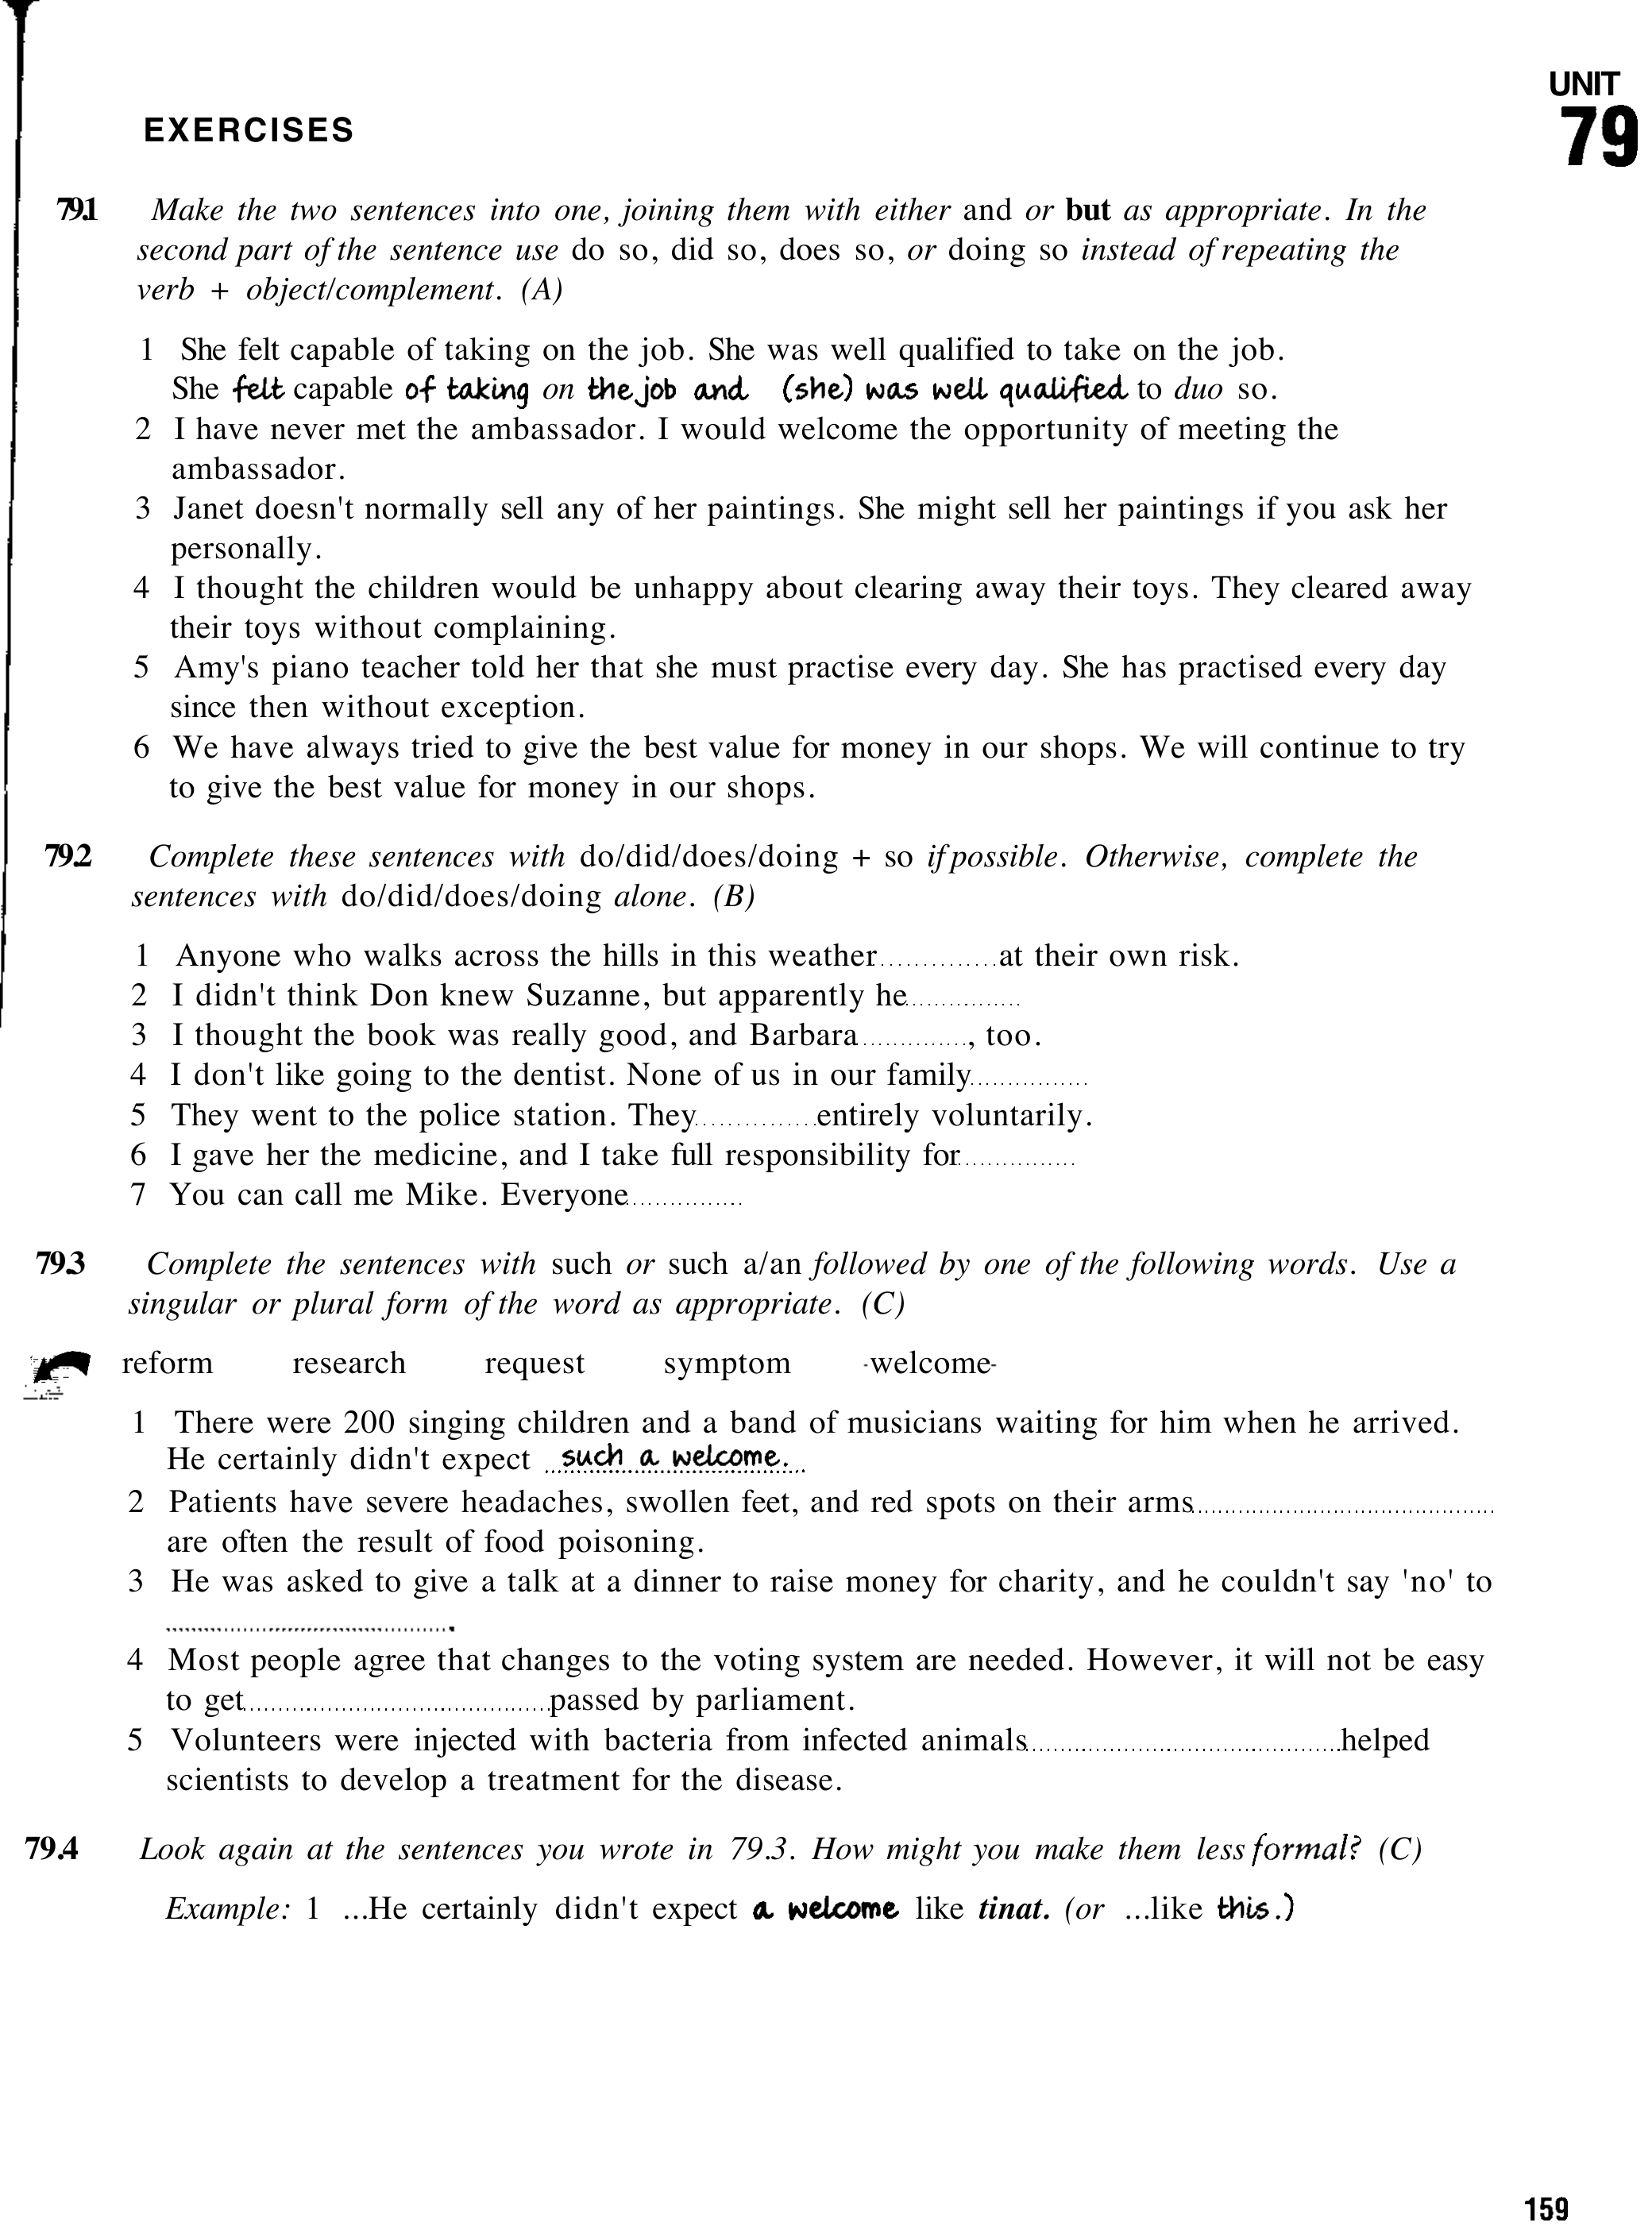 UNIT
79
EXERCISES
79.1 Make the two sentences into one, joining them with either and or but as appropriate. In the
second part of the sentence use do so, did so, does so, or doing so instead of repeating the
verb + object/complement. (A)
1 She felt capable of taking on the job. She was well qualified to take on the job.
She felt capable of taking on the job and (she) was well qualified to duo so.
2 I have never met the ambassador. I would welcome the opportunity of meeting the
ambassador.
3 Janet doesn't normally sell any of her paintings. She might sell her paintings if you ask her
personally.
4 I thought the children would be unhappy about clearing away their toys. They cleared away
their toys without complaining.
5 Amy's piano teacher told her that she must practise every day. She has practised every day
since then without exception.
6 We have always tried to give the best value for money in our shops. We will continue to try
to give the best value for money in our shops.
79.2 Complete these sentences with do/did/does/doing + so if possible. Otherwise, complete the
sentences with do/did/does/doing alone. (B)
1 Anyone who walks across the hills in this weather.............. at their own risk.
2 I didn't think Don knew Suzanne, but apparently he................
3 I thought the book was really good, and Barbara.............., too.
4 I don't like going to the dentist. None of us in our family................
5 They went to the police station. They...............entirely voluntarily.
6 I gave her the medicine, and I take full responsibility for................
7 You can call me Mike. Everyone................
79.3 Complete the sentences with such or such a/an followed by one of the following words. Use a
singular or plural form of the word as appropriate. (C)
reform research request symptom -welcome-
1 There were 200 singing children and a band of musicians waiting for him when he arrived.
He certainly didn't expect such a welcome.
2 Patients have severe headaches, swollen feet, and red spots on their arms..............................
are often the result of food poisoning.
3 He was asked to give a talk at a dinner to raise money for charity, and he couldn't say 'no' to
..............................
4 Most people agree that changes to the voting system are needed. However, it will not be easy
to get..............................passed by parliament.
5 Volunteers were injected with bacteria from infected animals..............................helped
scientists to develop a treatment for the disease.
79.4 Look again at the sentences you wrote in 79.3. How might you make them less formal? (C)
Example: 1 ...He certainly didn't expect a welcome like tinat. (or ...like this.)
159